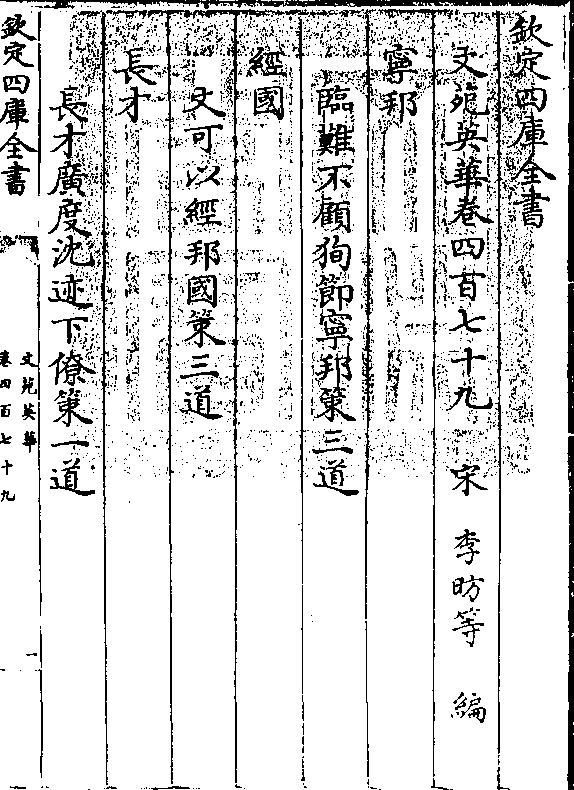 欽定四庫全書
文苑英華卷四百七十九 宋 李昉等 編
寧邦
臨難不顧狥節寧邦策三道
經國
文可以經邦國策三道
長才
長才廣度沈迹下僚策一道
欽定四庫全書
文苑英華
卷四百七十九
一